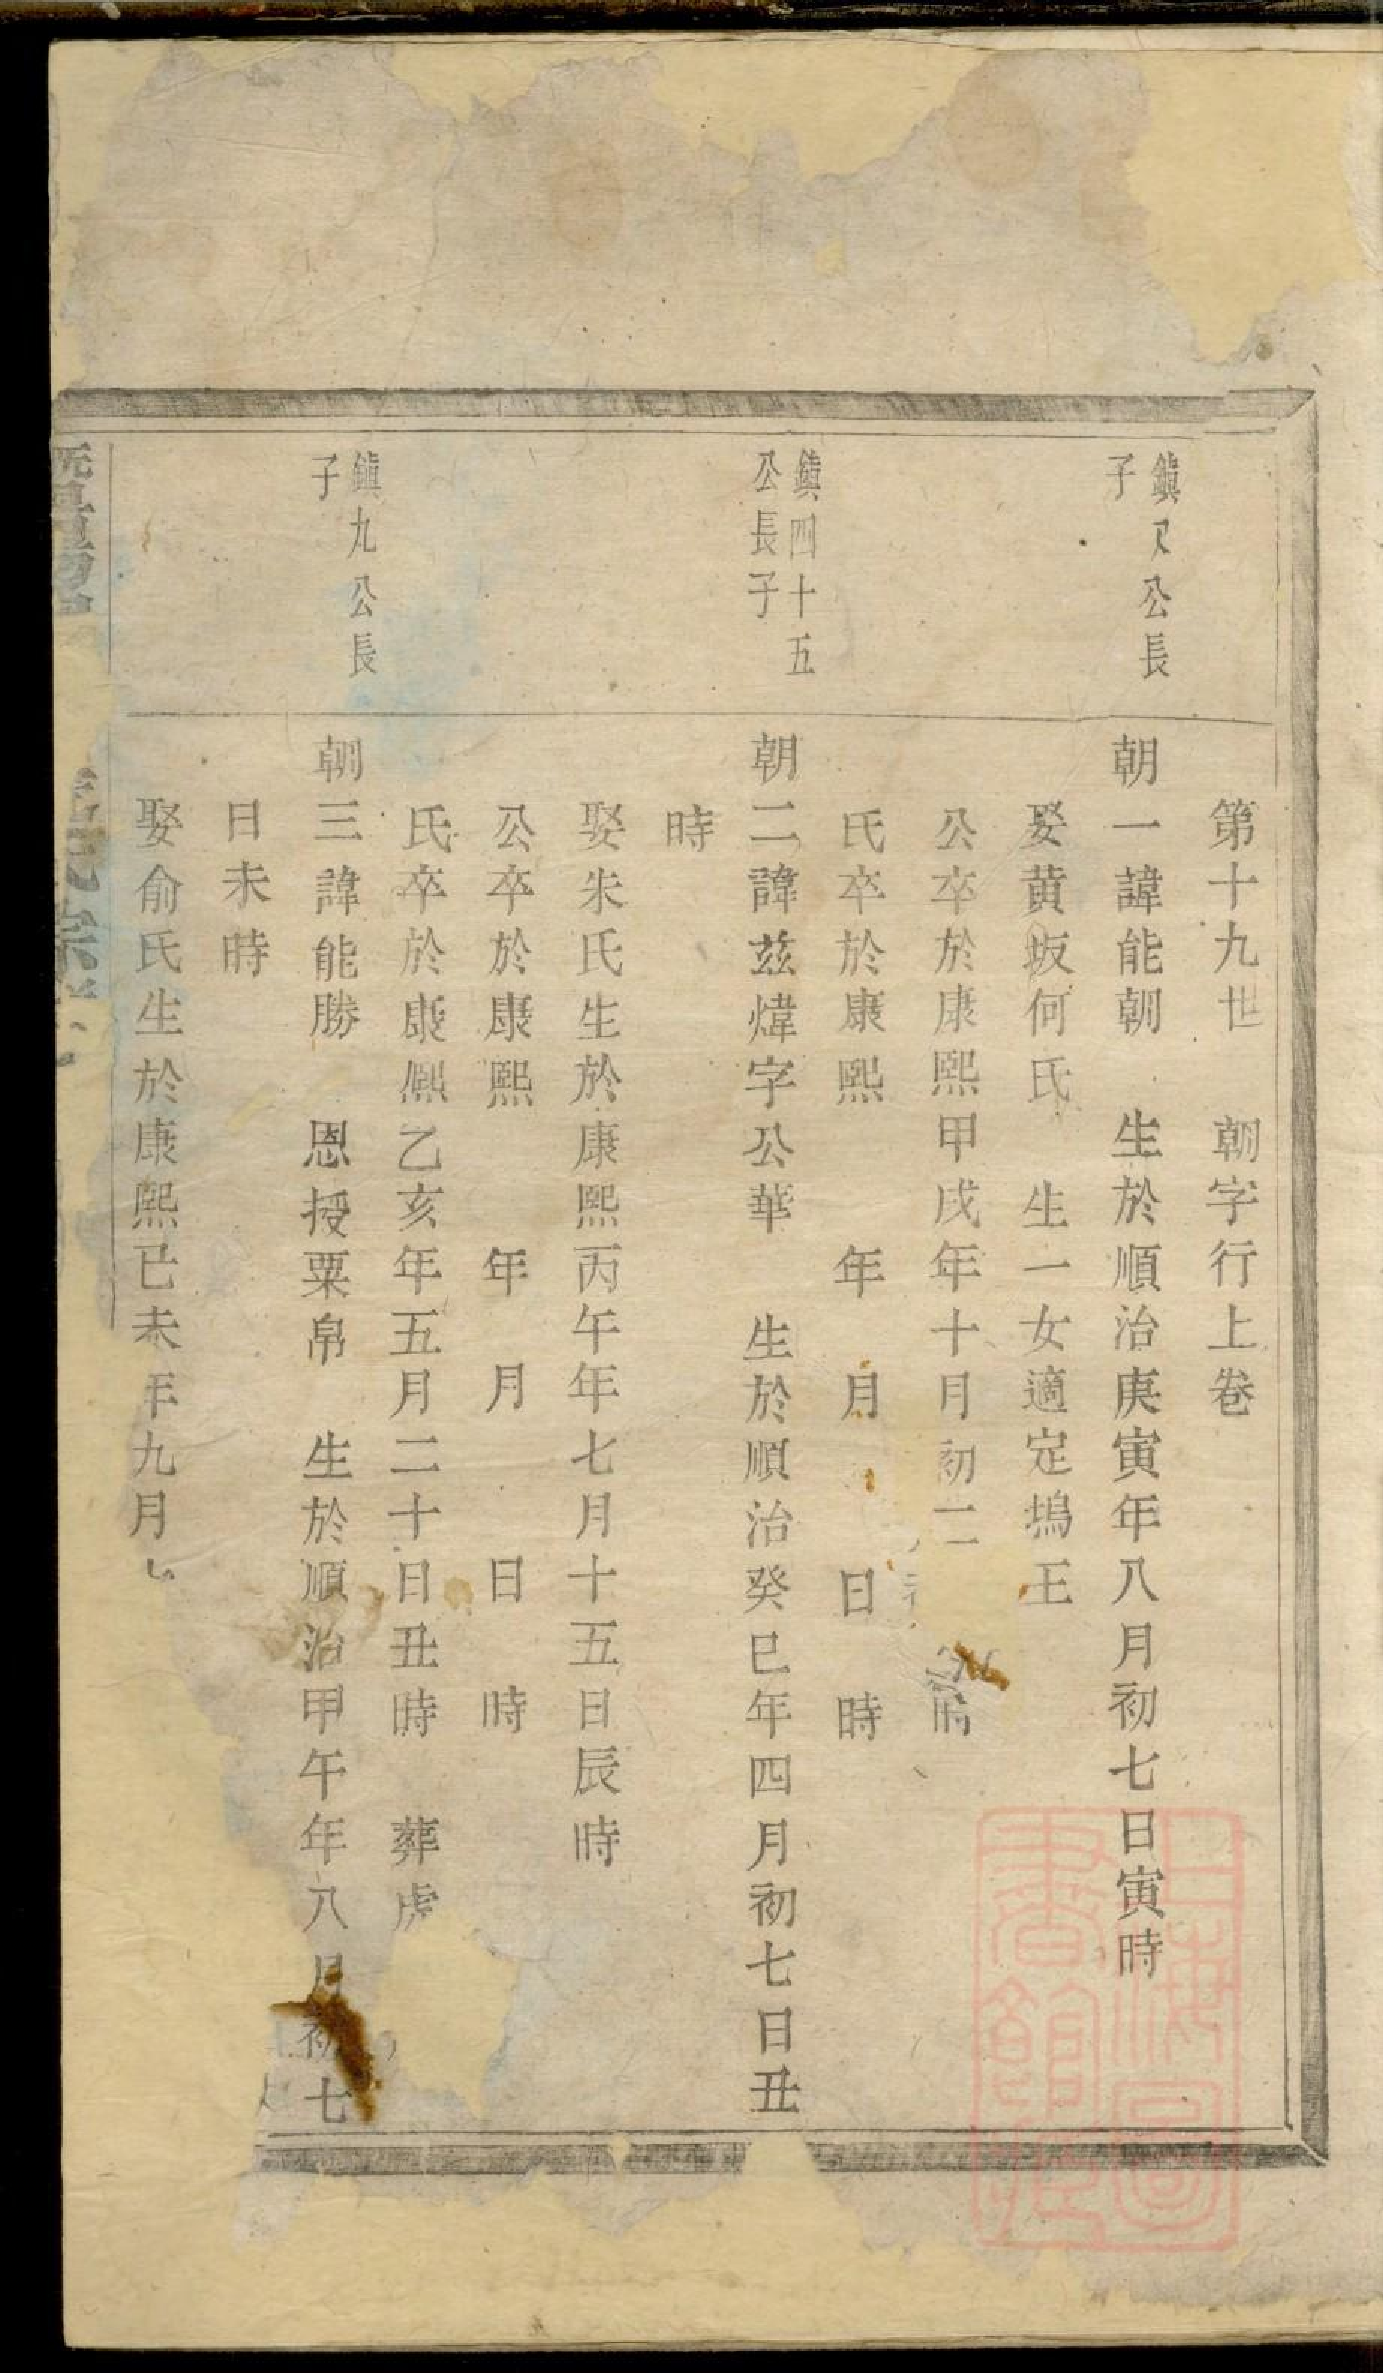 第十九世　朝字行上卷
鎮又公長
子
朝一諱能朝　生於順治庚寅年八月初七日寅時
娶黄坂何氏　生一女適定塢王
公卒於康熙甲戌年十月初二　時
氏卒於康熙　年　月　日　時
鎮四十五
公長子
朝二諱兹煒字公華　生於順治癸巳年四月初七日丑
時
娶朱氏生於康熙丙午年七月十五日辰時
公卒於康熙　年　月　日　時
氏卒於康熙乙亥年五月二十日丑時　葬虎
鎮九公長
子
朝三諱能勝　恩授粟帛　生於順治甲午年八月初七
日未時
娶俞氏生於康熙已未年九月
氏宗
上海圖
書館藏